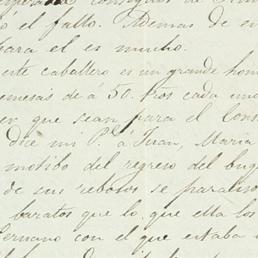 consegui
ó el fallo. Ademas de es
para él es mucho.
este caballero es un grande hom
remesas de á 50. fros cada uno
er que sean para el Cons
dice mi P. á Juan, Maria
motibo del regreso del buq
de sus rebosos se paraliso
baratos que lo, que ella los
hermano con el que estaba